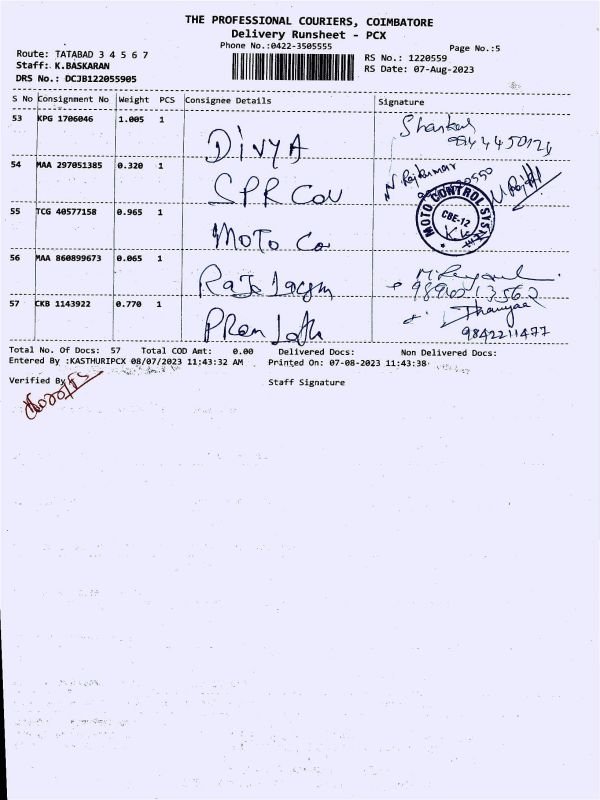 THE PROFESSIONAL COURIERS, COIMBATORE
Delivery Runsheet - PCX
Phone No.:0422-3505555
Page No.:5
Route: TATABAD 3 4 5 6 7
RS No.: 1220559
Staff: K.BASKARAN
RS Date: 07-Aug-2023
DRS No.: DCJB122055905
S No Consignment No Weight PCS Consignee Details Signature
53 KPG 1706046 1.005 1 DIVYA Shankar
54 MAA 297051385 0.320 1 SPR Cou N. Rajkumar
55 TCG 40577158 0.965 1 Moto Co MOTO CONTROL SYSTEM CBE-12
56 MAA 860899673 0.065 1
57 CKB 1143922 0.770 1 9842211477
Total No. Of Docs: 57 Total COD Amt: 0.00 Delivered Docs: Non Delivered Docs:
Entered By :KASTHURIPCX 08/07/2023 11:43:32 AM Printed On: 07-08-2023 11:43:38
Verified By
Staff Signature